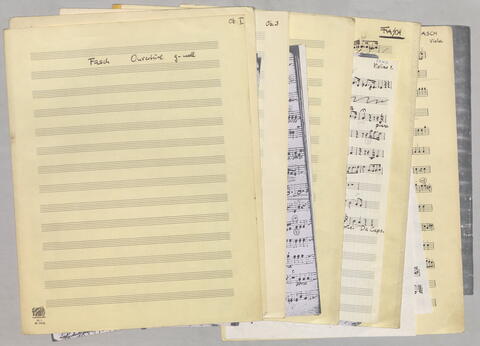 Ob. I
Fasch Ouvertüre g-moll
Ob. 3
FASCH
Violine 2.
piano
Da Capo
FASCH
Viola